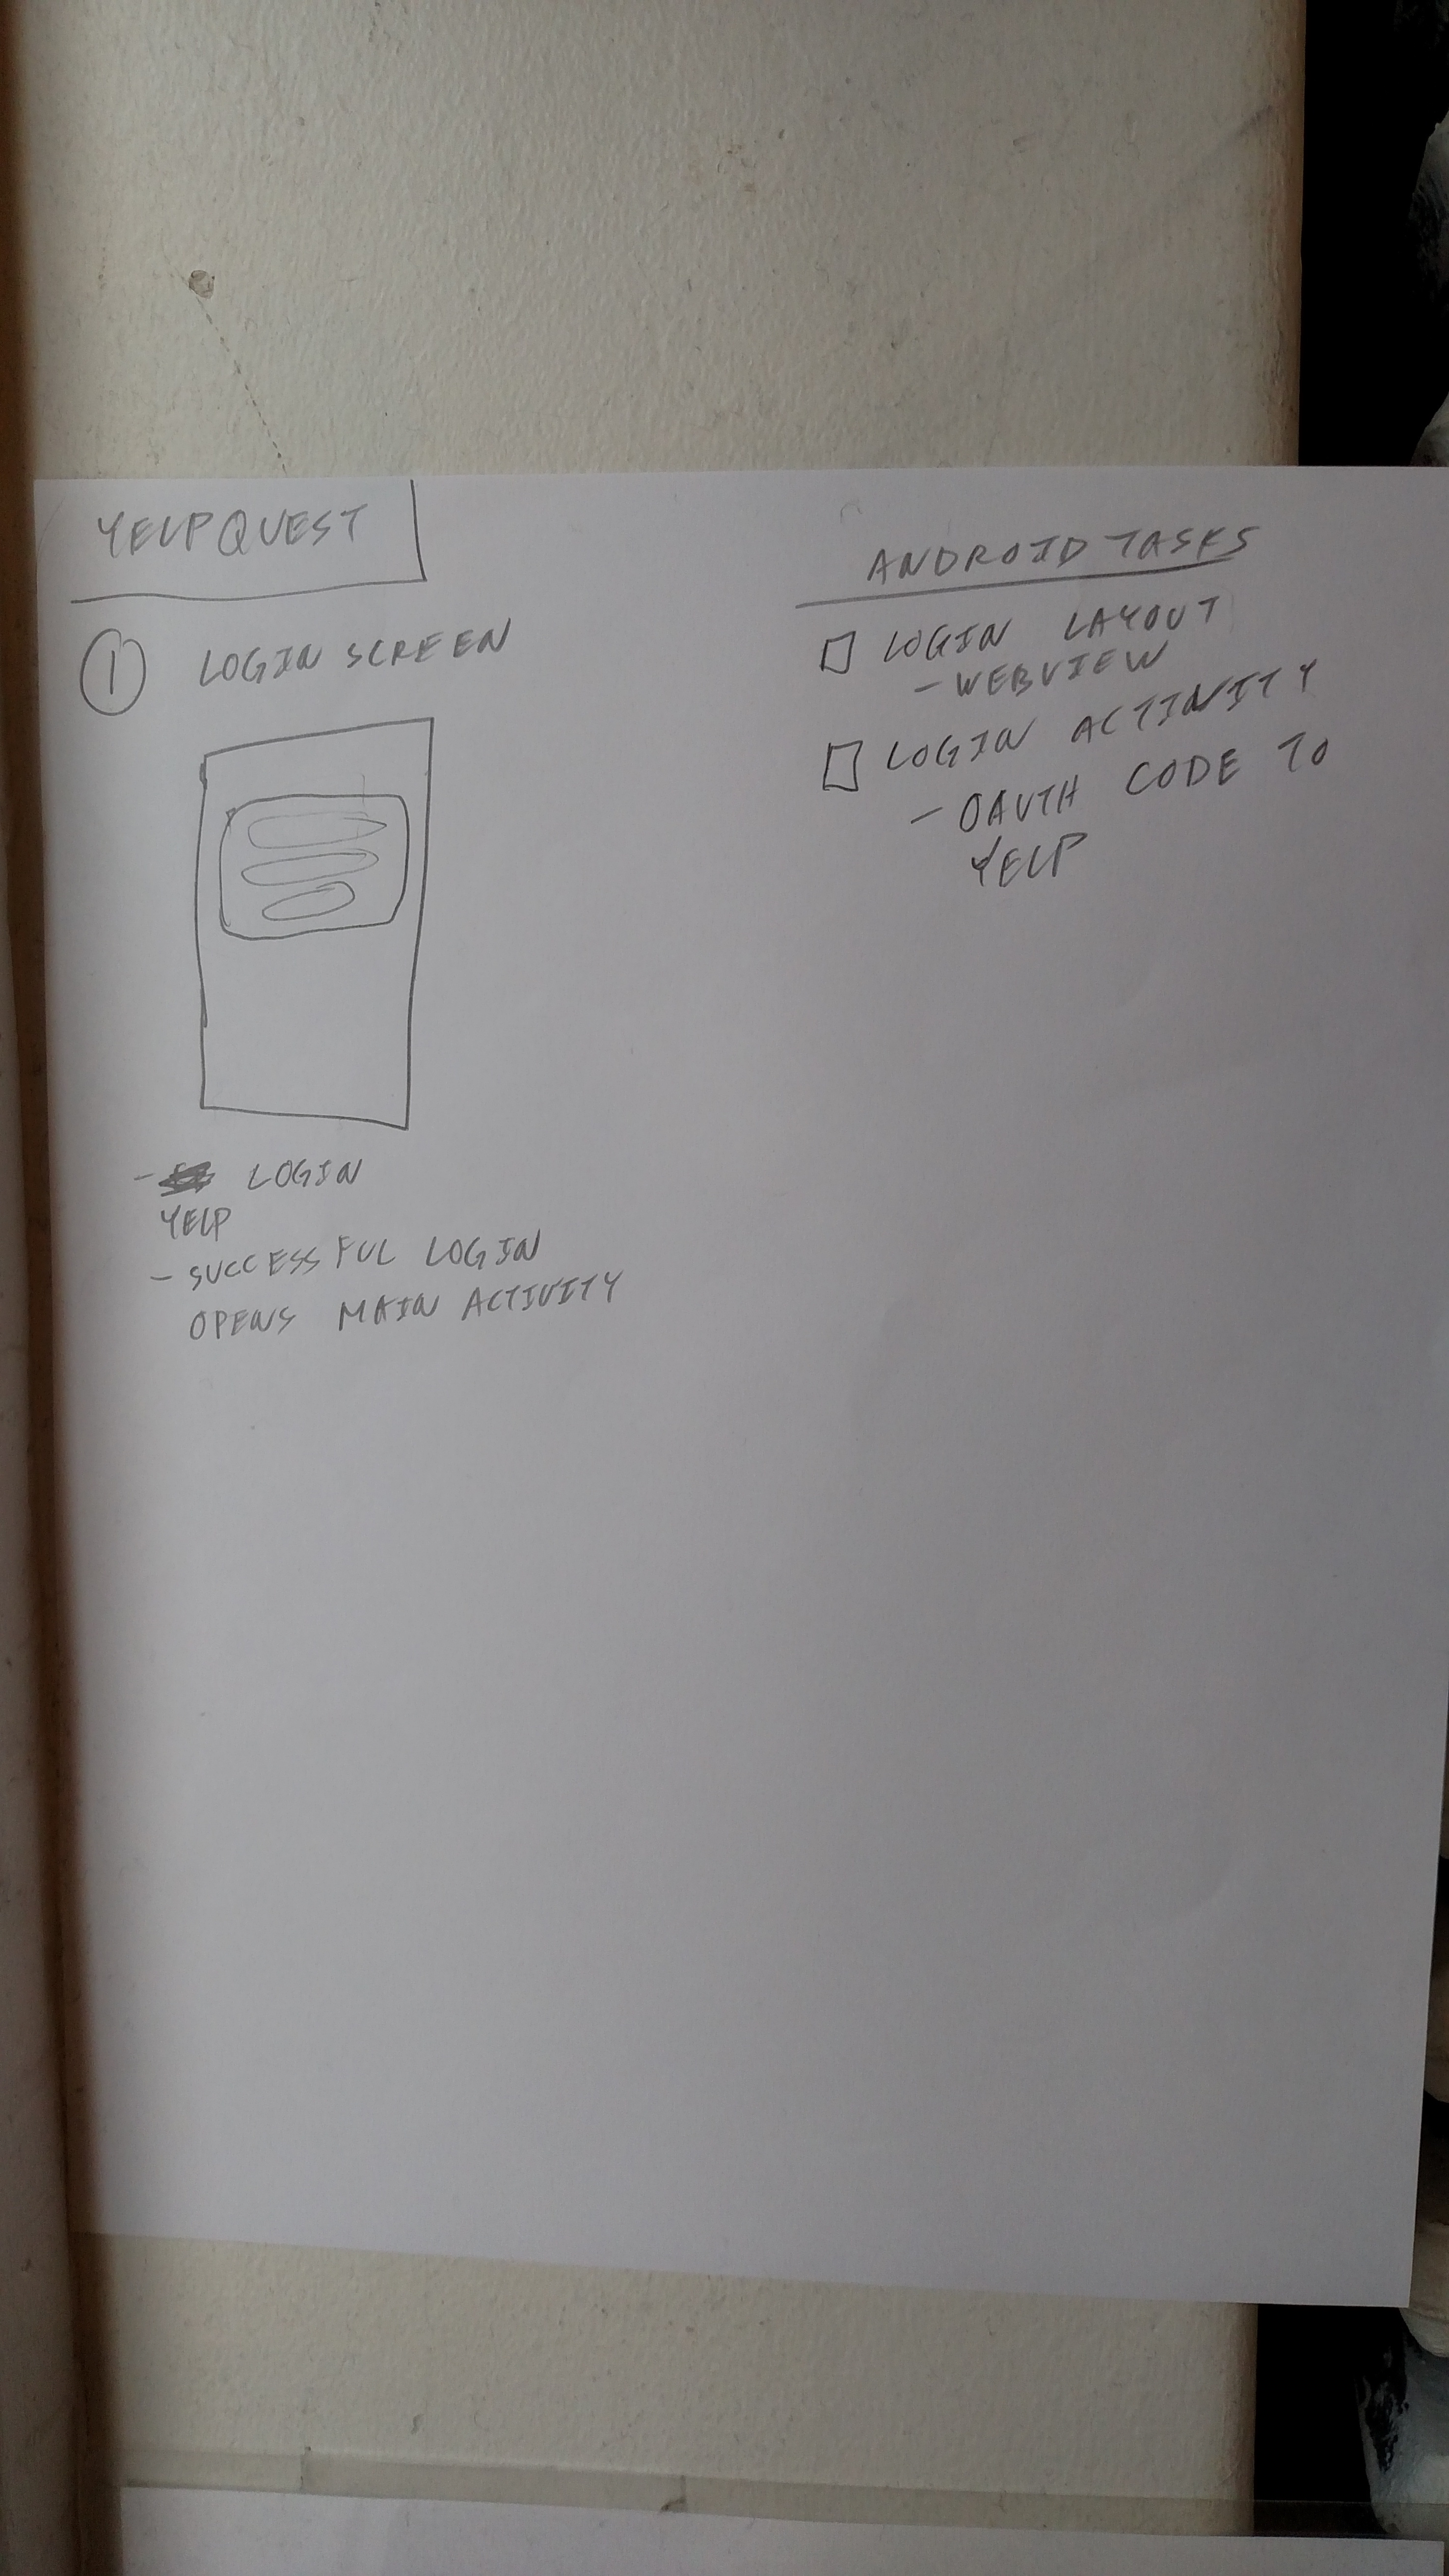 YELPQUEST
1 LOGIN SCREEN
- LOGIN
YELP
- SUCCESSFUL LOGIN
OPENS MAIN ACTIVITY
ANDROID TASKS
LOGIN LAYOUT
- WEBVIEW
LOGIN ACTIVITY
- OAUTH CODE TO
YELP